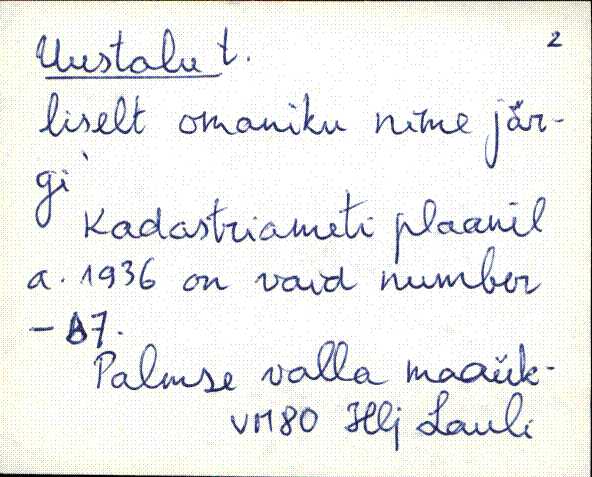 Uustalu t. 2
liselt omaniku nime jär-
gi
Kadastriameti plaanil
a. 1936 on vaid number
– A7.
Palmse valla maaük-
VM80 Hlj Lauli